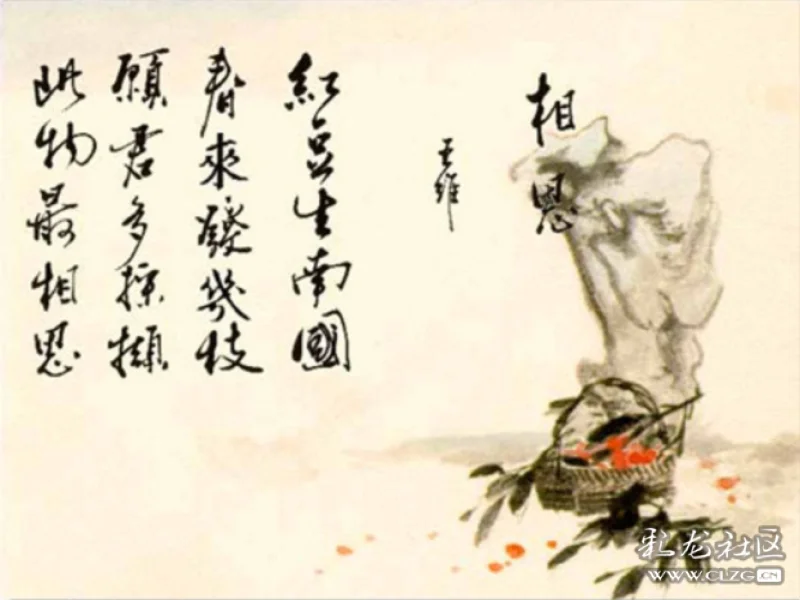 相思
王維
紅豆生南國
春來發幾枝
願君多採擷
此物最相思
彩龙社区
WWW.CLZG.CN